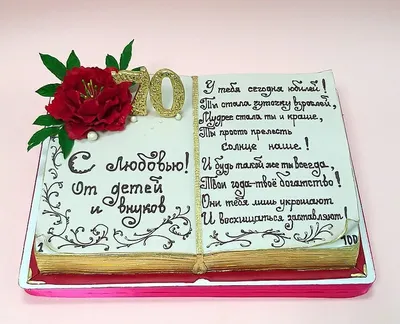 70
С Любовью!
От детей
и
внуков
1
У тебя сегодня юбилей!
Ты стала чуточку взрослей,
Мудрее стала ты и краше,
Ты просто прелесть
солнце наше!
И будь такой же ты всегда,
Твои года-твоё богатство!
Они тебя лишь украшают
И восхищаться заставляют!
100